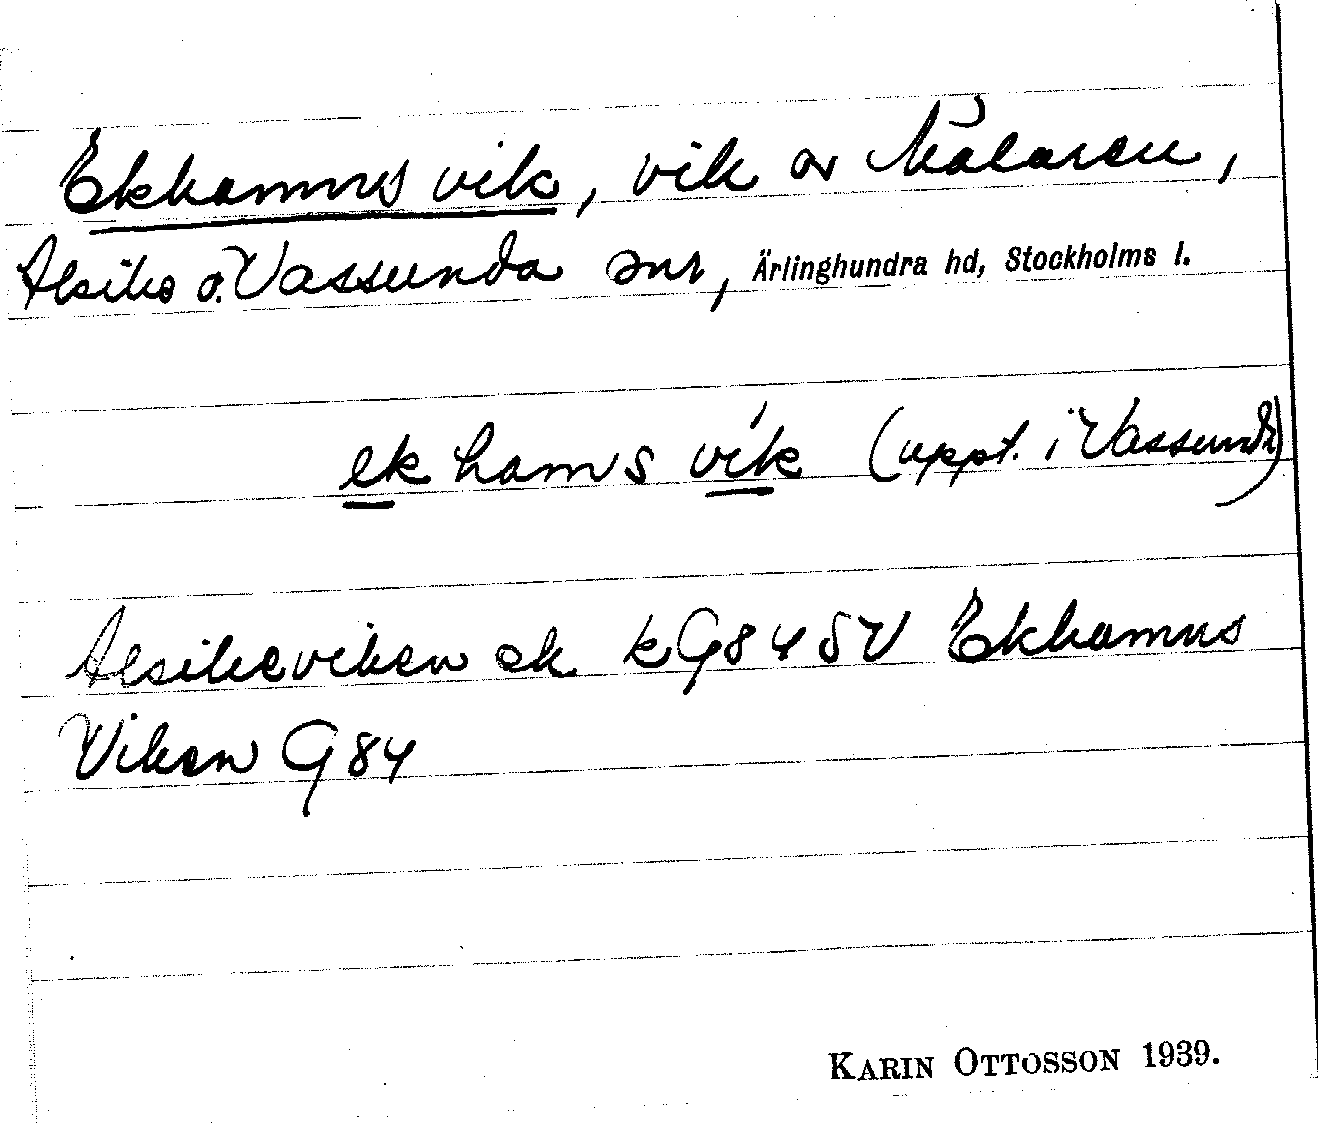 Ekhamns vik, vik av Mälaren,
Alsike o. Vassunda snr, Ärlinghundra hd, Stockholms l.
ek hamns vi´k (uppt. i Vassunda)
Alsikeviken ek kG84SV Ekhamns
Viken G84
KARIN OTTOSSON 1939.